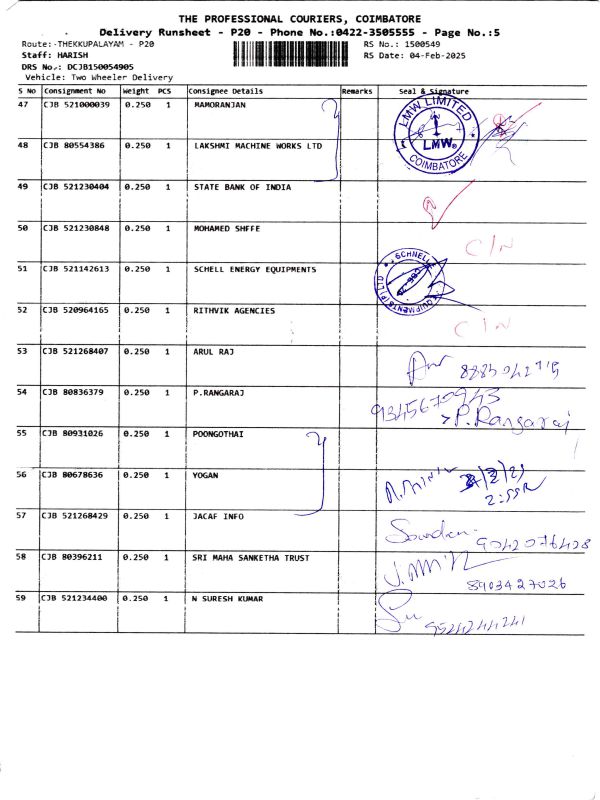 THE PROFESSIONAL COURIERS, COIMBATORE
Delivery Runsheet - P20 - Phone No.:0422-3505555 - Page No.:5
Route:-THEKKUPALAYAM - P20
RS No.: 1500549
Staff: HARISH
RS Date: 04-Feb-2025
DRS No.: DCJB150054905
Vehicle: Two Wheeler Delivery
S No Consignment No Weight PCS Consignee Details Remarks Seal & Signature
47 CJB 521000039 0.250 1 MAMORANJAN
LMW LIMITED
LMW®
COIMBATORE
48 CJB 80554386 0.250 1 LAKSHMI MACHINE WORKS LTD
49 CJB 521230404 0.250 1 STATE BANK OF INDIA
50 CJB 521230848 0.250 1 MOHAMED SHFFE
C/N
51 CJB 521142613 0.250 1 SCHELL ENERGY EQUIPMENTS
SCHNELL
52 CJB 520964165 0.250 1 RITHVIK AGENCIES
C/N
53 CJB 521268407 0.250 1 ARUL RAJ
54 CJB 80836379 0.250 1 P.RANGARAJ
9345670943
P.Rangaraj
55 CJB 80931026 0.250 1 POONGOTHAI
56 CJB 80678636 0.250 1 YOGAN
57 CJB 521268429 0.250 1 JACAF INFO
9042076428
58 CJB 80396211 0.250 1 SRI MAHA SANKETHA TRUST
8903427026
59 CJB 521234400 0.250 1 N SURESH KUMAR